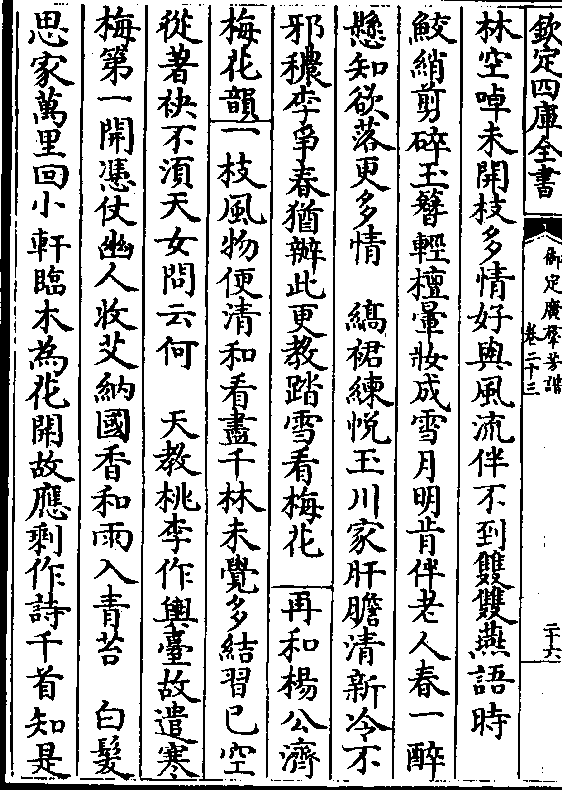 欽定四庫全書
御定廣羣芳譜
卷二十三
二十六
林空啅未開枝多情好與風流伴不到雙雙燕語時
鮫綃剪碎玉簪輕檀暈妝成雪月明肯伴老人春一醉
懸知欲落更多情　縞裙練帨玉川家肝膽清新冷不
邪穠李爭春猶辦此更教踏雪看梅花　再和楊公濟
梅花韻　一枝風物便清和看盡千林未覺多結習已空
從著袂不湏天女問云何　天教桃李作輿臺故遣寒
梅第一開憑仗幽人收艾納國香和雨入青苔　白髮
思家萬里回小軒臨水為花開故應剩作詩千首知是